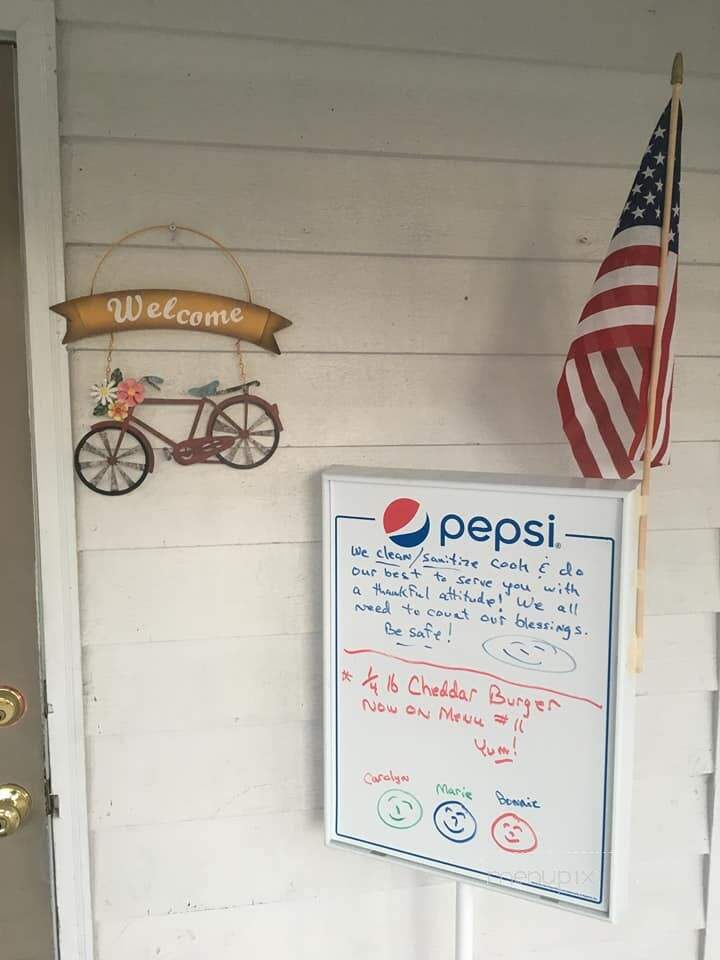 Welcome
pepsi
We clean/sanitize cook & do
our best to serve you with
a thankful attitude! We all
need to count our blessings.
Be safe!
* 1/4 lb Cheddar Burger
Now on Menu #11
Yum!
Carolyn Marie Bonnie
menupix